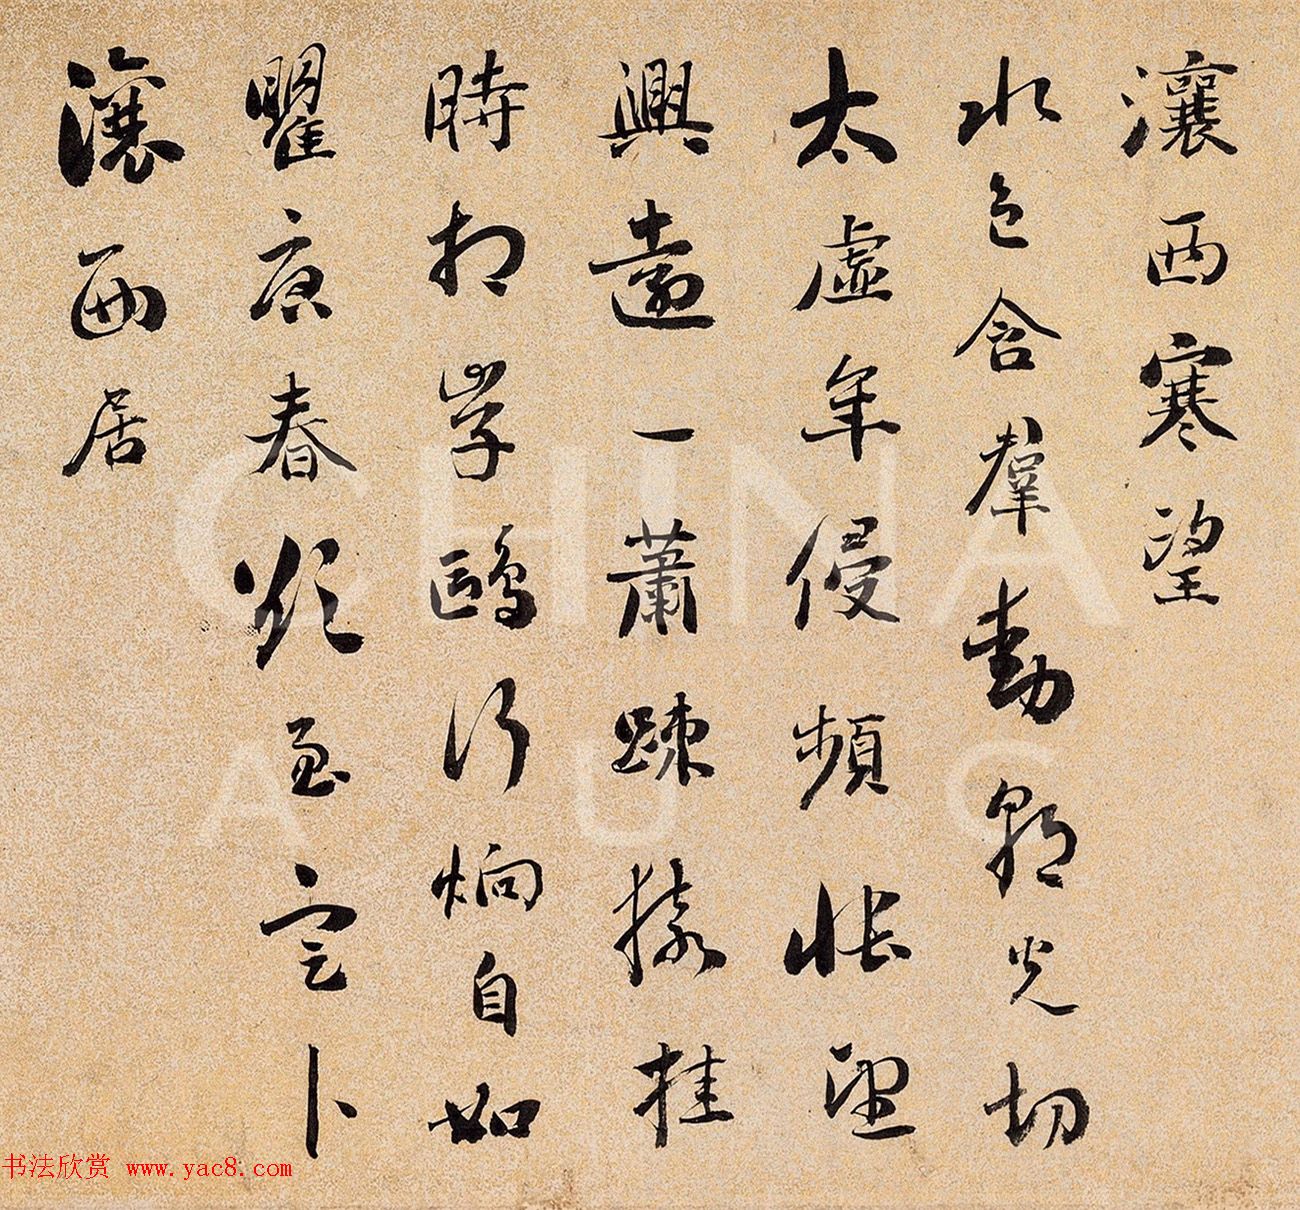 瀼西寒望
水色含羣動朝光切
太虛年侵頻悵望
興遠一蕭踈猿挂
時相學鷗行炯自如
瞿唐春欲至定卜
瀼西居
CHINA
AUG
书法欣赏 www.yac8.com